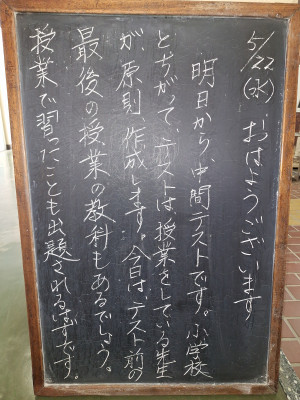 5/22(水) おはようございます
明日から、中間テストです。小学校
とちがって、テストは、授業をしている先生
が、原則、作成します。今日は、テスト前の
最後の授業の教科もあるでしょう。
授業で習ったことも出題されるはずです。